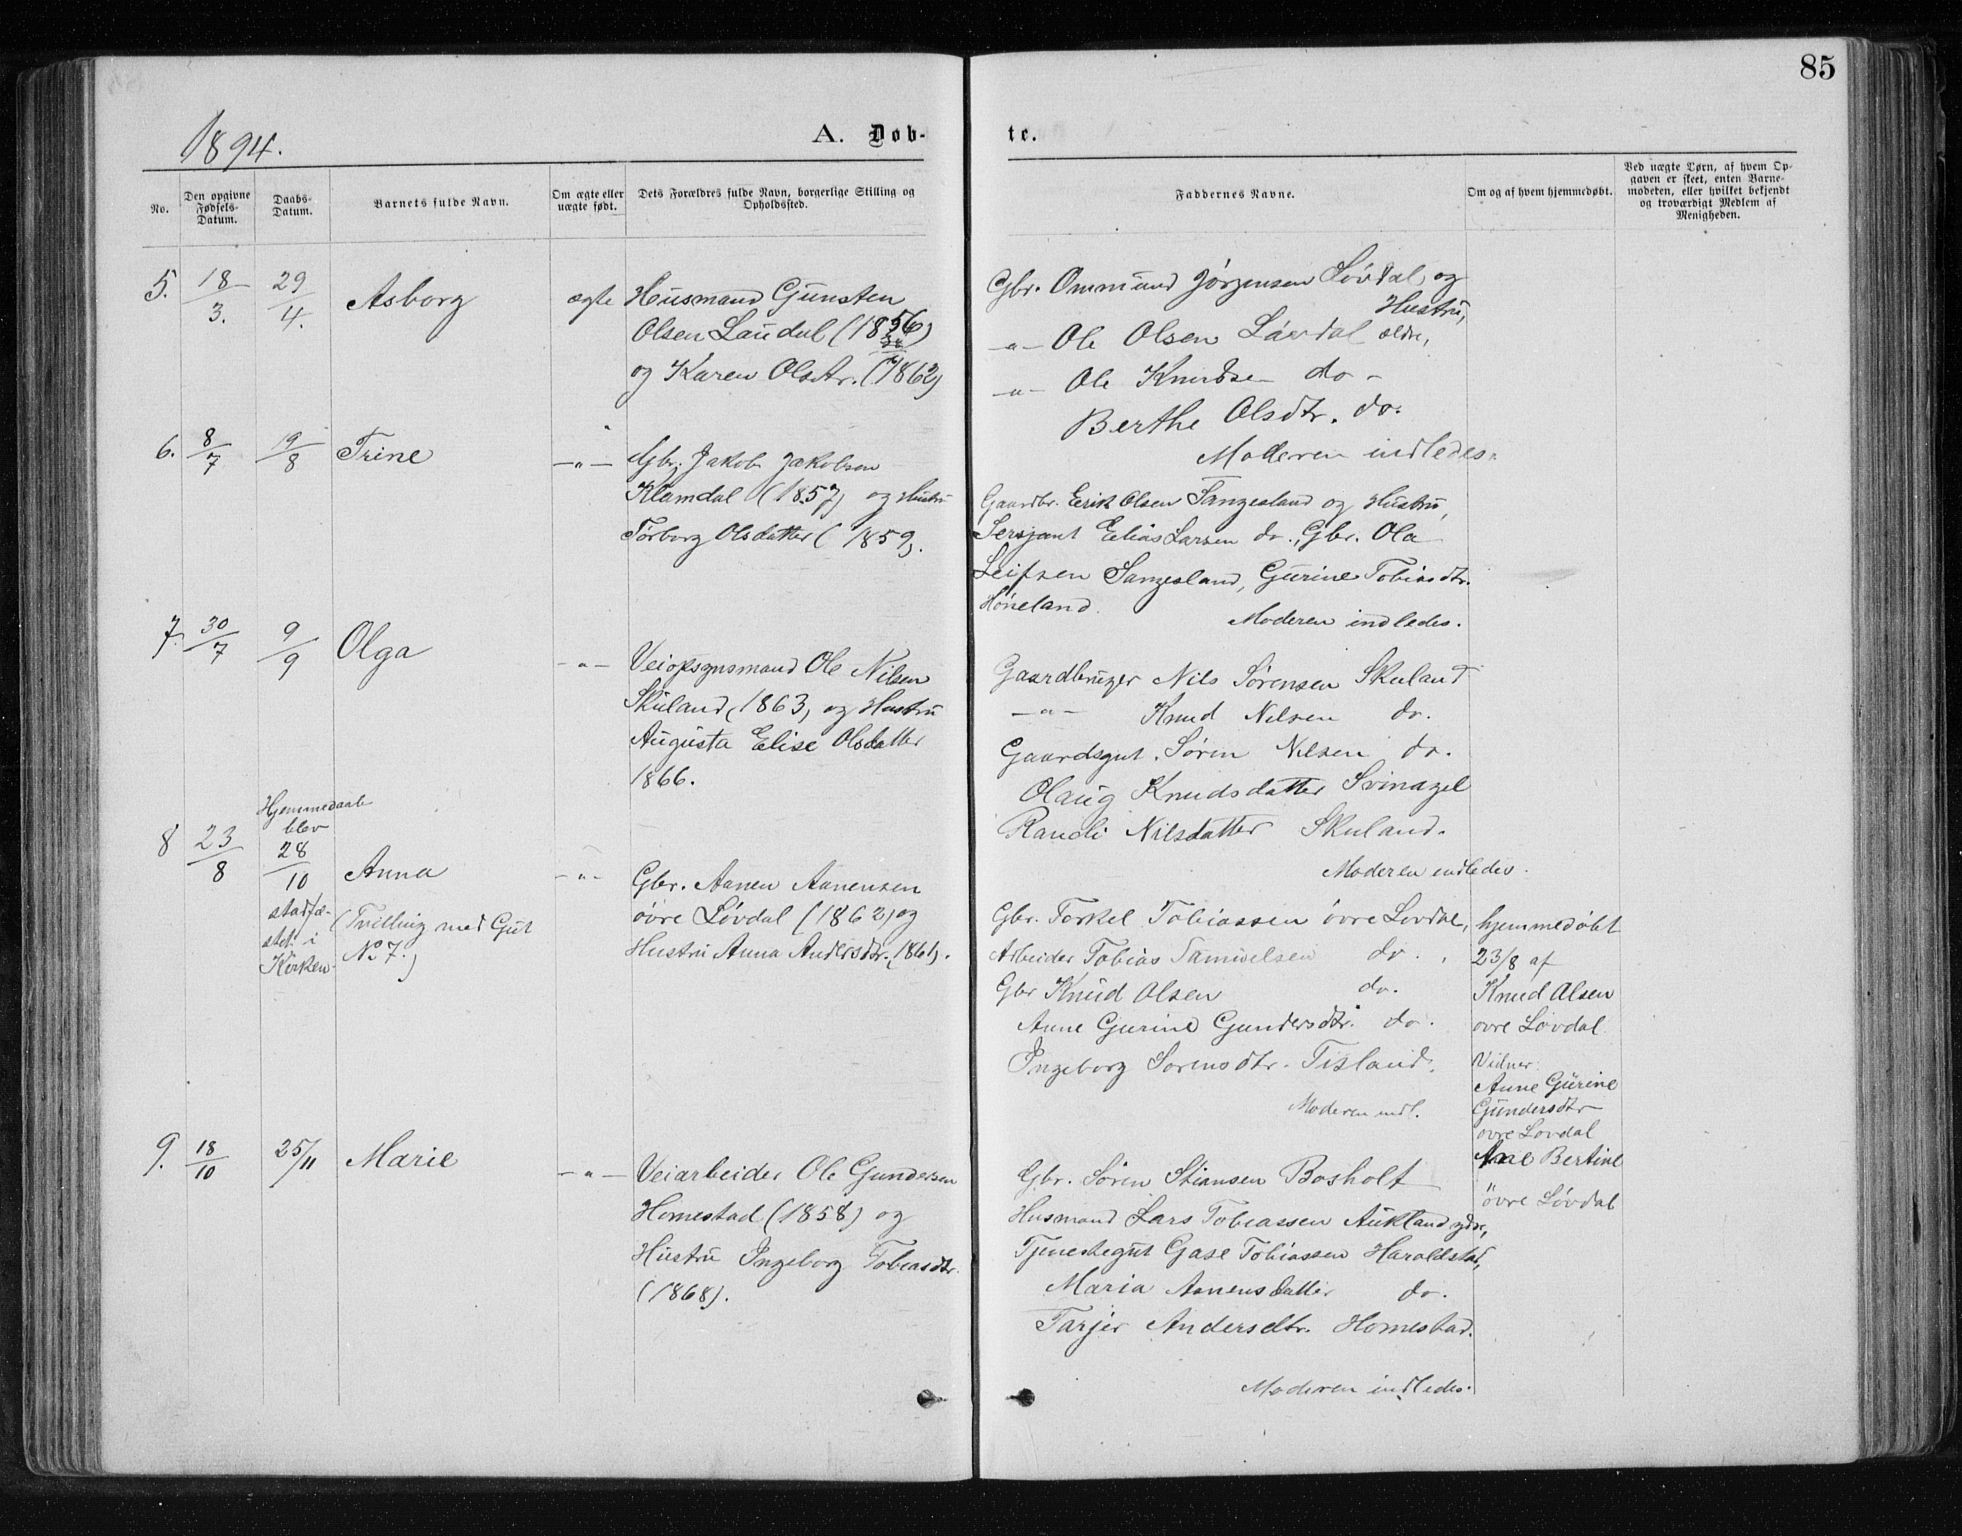 85
1894.
A. Døb-
te.
No.
Den opgivne Fødsels-Datum.
Daabs-Datum.
Barnets fulde Navn.
Om ægte eller uægte født.
Dets Forældres fulde Navn, borgerlige Stilling og Opholdssted.
Faddernes Navne.
Om og af hvem hjemmedøbt.
Ved uægte Børn, af hvem Opgaven er skeet, enten Barnemoderen, eller hvilket bekjendt og troværdigt Medlem af Menigheden.
5. 18/3. 29/4. Asborg ægte
Husmand Gunsten
Olsen Laudal (1856)
og Karen Olsdtr. (1862)
Gbr. Ommund Jørgensen Løvdal og
Hustru,
-"- Ole Olsen Løvdal ældre,
-"- Ole Knudsen do -
Berthe Olsdtr. do.
Moderen indledes.
6. 8/7 19/8 Trine -"-
Gbr. Jakob Jakobsen
Klamdal (1857) og Hustru
Torborg Olsdatter (1859).
Gaardbr. Erik Olsen Fangesland og Hustru,
Sersjant Elias Larsen do., Gbr. Ola
Leifsen Sangesland, Gurine Tobiasdtr.
Høneland.
Moderen indledes.
7. 30/7 9/9 Olga -"-
Veiopsynsmand Ole Nilsen
Skuland (1863) og Hustru
Augusta Elise Olsdatter
1866.
Gaardbruger Nils Sørensen Skuland
-"- Knud Nilsen do.
Gaardsgut Søren Nilsen do.
Olaug Knudsdatter Svinagel
Randi Nilsdatter Skuland.
Moderen indledes.
8 23/8
Hjemmedaab
blev
28/10
stadfæ-
stet i
Kirken
Anna
(Tvilling med Gut
No 7.)
-"-
Gbr. Aanen Aanensen
øvre Løvdal (1862) og
Hustru Anna Andersdtr. (1861).
Gbr. Torkel Tobiassen øvre Løvdal,
Arbeider Tobias Samuelsen do.,
Gbr Knud Olsen do.
Anne Gurine Gundersdtr. do.
Ingeborg Sørensdtr. Tisland.
Moderen indl.
hjemmedøbt
23/8 af
Knud Olsen
øvre Løvdal
Vidner:
Anne Gurine
Gundersdtr
øvre Løvdal
Ane Bertine
øvre Løvdal
9. 18/10 25/11 Marie -"-
Veiarbeider Ole Gundersen
Homestad (1858) og
Hustru Ingeborg Tobiasdtr.
(1868).
Gbr. Søren Stiansen Bosholt
Husmand Lars Tobiassen Aukland ydre,
Tjenestegut Gase Tobiassen Haraldstad,
Maria Aanensdatter do.
Tarjer Andersdtr. Homestad.
Moderen indledes.